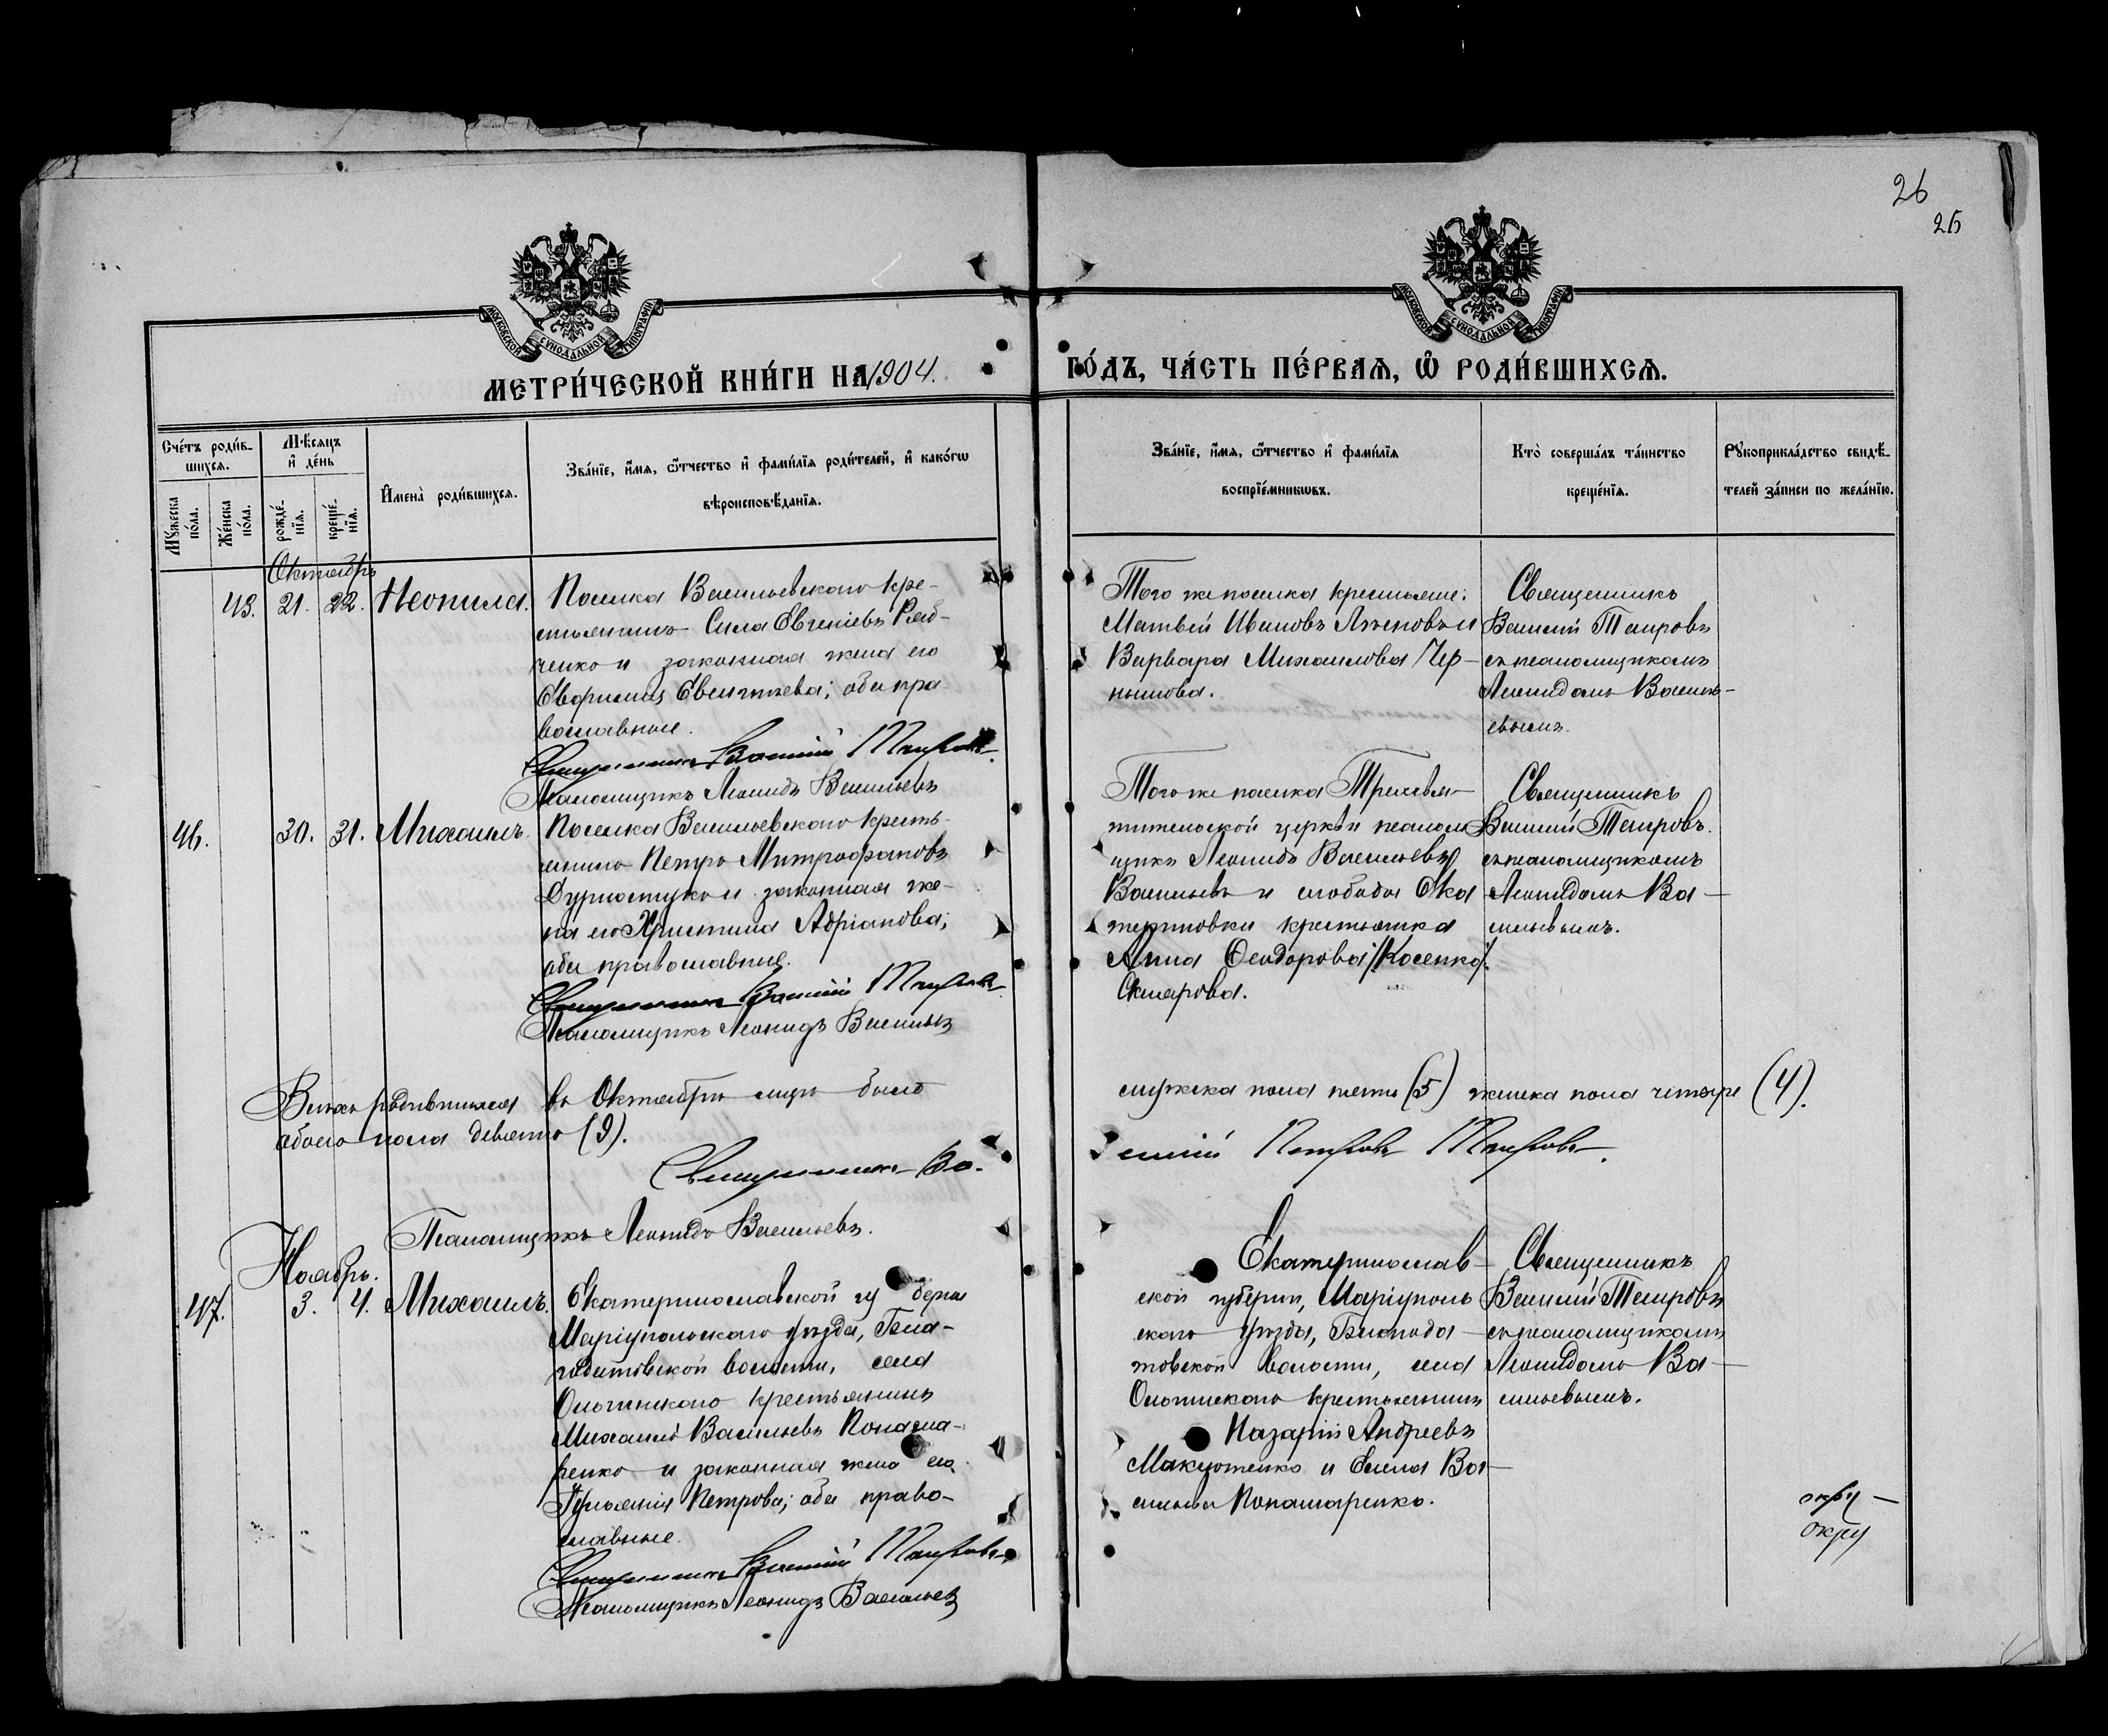 26
25
МОСКОВСКОЙ СУНОДАЛЬНОЙ ТИПОГРАФІИ
МОСКОВСКОЙ СУНОДАЛЬНОЙ ТИПОГРАФІИ
МЕТРИ́ЧЕСКОЙ КНИ́ГИ НА 1904.
ГО́ДЪ, ЧА́СТЬ ПЕ́РВАѦ, Ѿ РОДИ́ВШИХСѦ.
Сче́тъ роди́в-
шихсѧ.
Мꙋ́жеска по́ла.
Же́нска по́ла.
Мѣ́сѧцъ и҆ де́нь
рожде́-нїѧ.
креще́-нїѧ.
И҆мена̀ роди́вшихсѧ.
Зва́нїе, и҆́мѧ, ѻ҆́тчество и҆ фами́лїѧ роди́телей, и҆ како́гѡ
вѣроисповѣ́данїѧ.
Зва́нїе, и҆́мѧ, ѻ҆́тчество и҆ фами́лїѧ
воспрїе́мникѡвъ.
Кто̀ соверша́лъ та́инство
креще́нїѧ.
Рꙋкоприкла́дство свидѣ́-
телей за́писи по жела́нїю.
Октябрь
43. 21. 22. Неонила.
Поселка Васильевскаго кре-
стьянинъ Сила Евгеніевъ Ряб-
ченко и законная жена его
Евфимія ; оба пра-
вославные.
Священникъ Василій Таировъ
Псаломщикъ Леонидъ Васильевъ
Того же поселка крестьяне:
Матвей Ивановъ и
Варвара Михаилова Чер-
нышова.
Священникъ
Василій Таировъ
съ псаломщикомъ
Леонидомъ Василь-
евымъ.
46. 30. 31. Михаилъ.
Поселка Васильевскаго кресть-
янинъ Петръ Митрофановъ
и законная же-
на его Христина Адріанова;
оба православные.
Священникъ Василій Таировъ
Псаломщикъ Леонидъ Васильевъ
Того же поселка Трехсвя-
тительской церкви псалом
щикъ Леонидъ Васильевъ
Васильевъ и слободы Ека
териновки крестьянка
Анна Ѳеодорова /Косенко/
Склярова.
Священникъ
Василій Таировъ.
съ псаломщикомъ
Леонидомъ Ва-
сильевымъ.
Всѣхъ родившихся въ Октябрѣ мцѣ было
мужска пола пять (5) женска пола четыре (4).
обоего пола девять (9).
Священникъ Ва-
силій Петровъ Таировъ.
Псаломщикъ Леонидъ Васильевъ.
Ноябрь.
47. 3. 4. Михаилъ.
Екатеринославской гу берніи
Маріупольскаго уѣзда, Бла-
годатовской волости, села
Ольгинскаго крестьянинъ
Михаилъ Васильевъ Понама-
ренко и законная жена его
Петрова; оба право-
славные.
Священникъ Василій Таировъ
Псаломщикъ Леонидъ Васильевъ
Екатеринослав-
ской губерніи, Маріуполь
скаго уѣзда, Благода-
товской волости, села
Ольгинскаго крестьянинъ
Назарій Андреевъ
Макуотенко и Елена Ва-
сильева Понамаренко.
Священникъ
Василій Таировъ
съ псаломщикомъ
Леонидомъ Ва-
сильевымъ.
окру-
окру